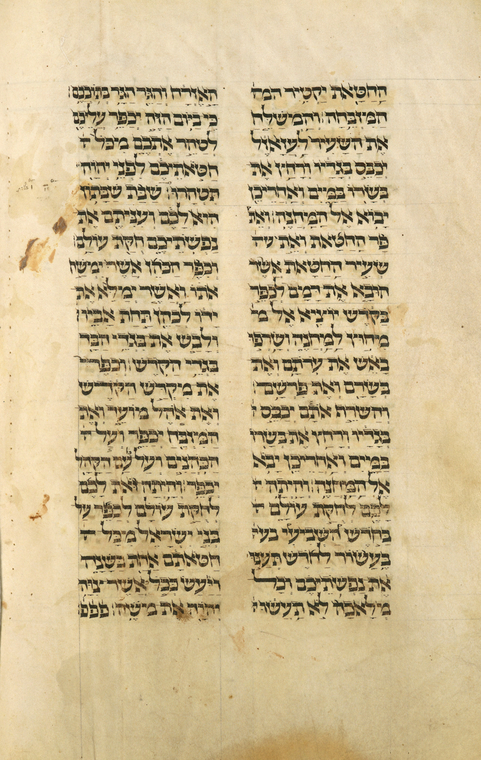 החטאת יקטיר המז
המזבחה׃ והמשלח
את השעיר לעזאזל
יכבס בגדיו ורחץ את
בשרו במים ואחרי כן
יבוא אל המחנה׃ ואת
פר החטאת ואת
שעיר החטאת אשר
הובא את דמם לכפר
בקדש יוציא אל מ
מחוץ למחנה ושרפו
באש את ערתם ואת
בשרם ואת פרשם׃
והשרף אתם יכבס
בגדיו ורחץ את בשרו
במים ואחרי כן יבא
אל המחנה׃ והיתה
לכם לחקת עולם
בחדש השביעי בע
בעשור לחדש תענו
את נפשתיכם וכל
מלאכה לא תעשו
האזרח והגר הגר בתוככם׃
כי ביום הזה יכפר עליכם
לטהר אתכם מכל ח
חטאתיכם לפני יהוה
תטהרו׃ שבת שבתון
היא לכם ועניתם את
נפשתיכם חקת עולם׃
וכפר הכהן אשר ימשח
אתו ואשר ימלא את
ידו לכהן תחת אביו
ולבש את בגדי הבד
בגדי הקדש׃ וכפר
את מקדש הקדש
ואת אהל מועד ואת
המזבח יכפר ועל ה
הכהנים ועל כל עם הקהל
יכפר׃ והיתה זאת לכם
לחקת עולם לכפר על
בני ישראל מכל ח
חטאתם אחת בשנה
ויעש כאשר צוה
יהוה את משה׃ פפפ